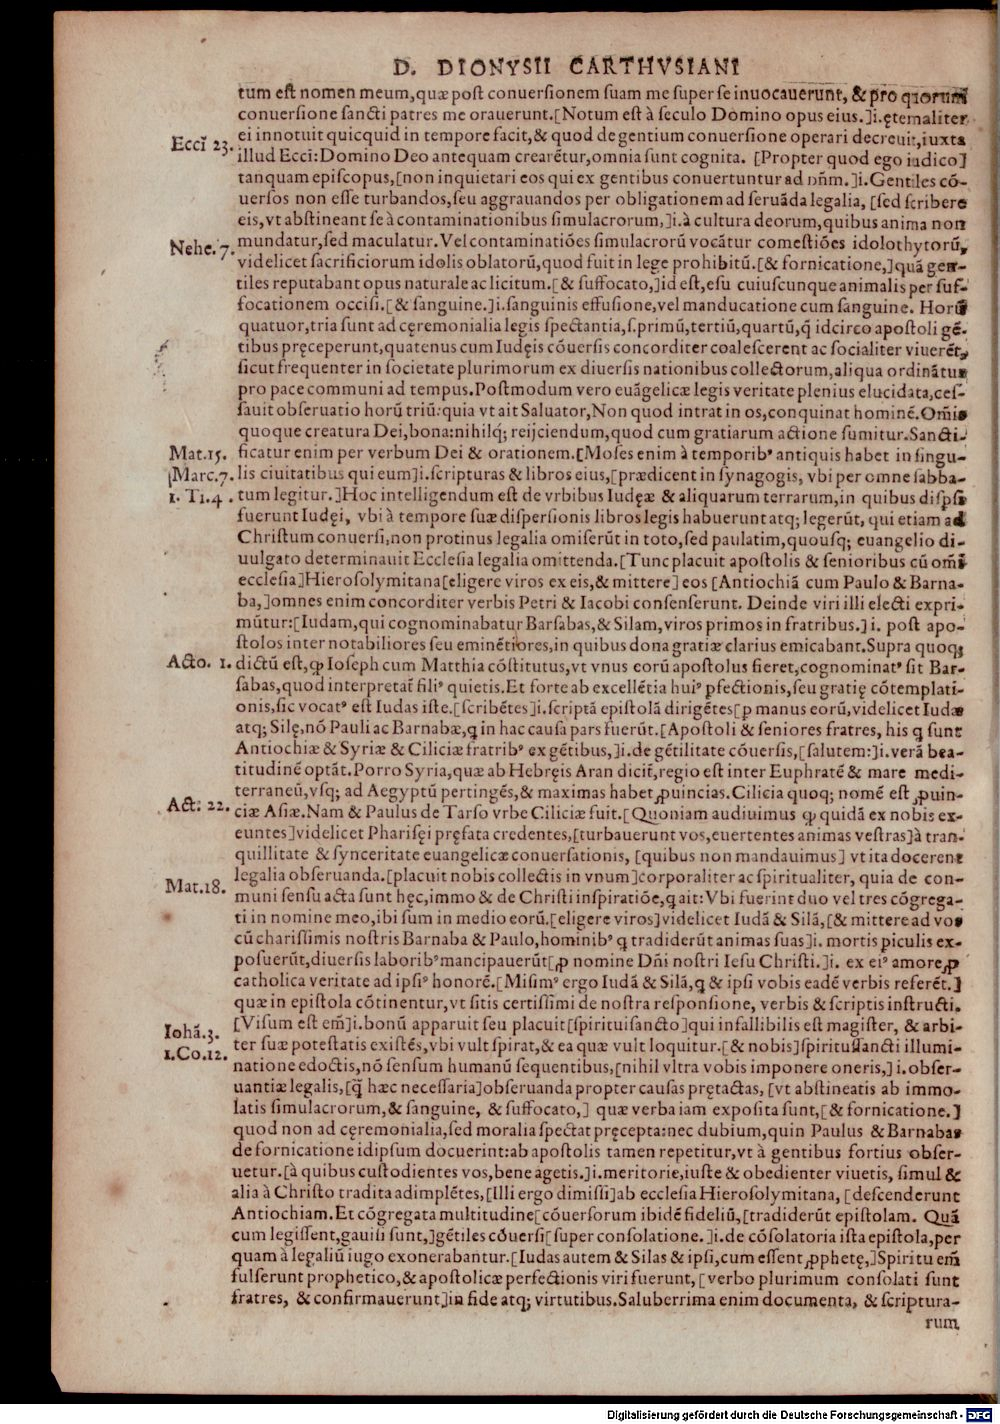 D. DIONYSII CARTHVSIANI
tum est nomen meum, quæ post conuersionem suam me super se inuocauerunt, & pro quorum
conuersione sancti patres me orauerunt. [Notum est à seculo Domino opus eius.] i. ęternaliter
ei innotuit quicquid in tempore facit, & quod de gentium conuersione operari decreuit, iuxta
Eccī 23.
illud Eccī: Domino Deo antequam crearētur, omnia sunt cognita. [Propter quod ego iudico]
tanquam episcopus, [non inquietari eos qui ex gentibus conuertuntur ad dñm.] i. Gentiles cō-
uersos non esse turbandos, seu aggrauandos per obligationem ad seruāda legalia, [sed scribere
eis, vt abstineant se à contaminationibus simulacrorum,] i. à cultura deorum, quibus anima non
Nehe. 7.
mundatur, sed maculatur. Vel contaminatiōes simulacrorū vocātur comestiōes idolothytorū,
videlicet sacrificiorum idolis oblatorū, quod fuit in lege prohibitū. [& fornicatione,] quā gen-
tiles reputabant opus naturale ac licitum. [& suffocato,] id est, esu cuiuscunque animalis per suf-
focationem occisi. [& sanguine.] i. sanguinis effusione, vel manducatione cum sanguine. Horū
quatuor, tria sunt ad cęremonialia legis spectantia, s. primū, tertiū, quartū, q̄ idcirco apostoli gē-
tibus pręceperunt, quatenus cum Iudęis cōuersis concorditer coalescerent ac socialiter viuerēt,
sicut frequenter in societate plurimorum ex diuersis nationibus collectorum, aliqua ordinātur
pro pace communi ad tempus. Postmodum vero euāgelicæ legis veritate plenius elucidata, ces-
sauit obseruatio horū triū: quia vt ait Saluator, Non quod intrat in os, conquinat hominē. Om̄is
quoque creatura Dei, bona: nihilq; reijciendum, quod cum gratiarum actione sumitur. Sancti-
Mat. 15.
ficatur enim per verbum Dei & orationem. [Moses enim à temporib⁹ antiquis habet in singu-
Marc. 7.
lis ciuitatibus qui eum] i. scripturas & libros eius, [prædicent in synagogis, vbi per omne sabba-
1. Ti. 4.
tum legitur.] Hoc intelligendum est de vrbibus Iudęæ & aliquarum terrarum, in quibus dispsi
fuerunt Iudęi, vbi à tempore suæ dispersionis libros legis habuerunt atq; legerūt, qui etiam ad
Christum conuersi, non protinus legalia omiserūt in toto, sed paulatim, quousq; euangelio di-
uulgato determinauit Ecclesia legalia omittenda. [Tunc placuit apostolis & senioribus cū om̄i
ecclesia] Hierosolymitana [eligere viros ex eis, & mittere] eos [Antiochiā cum Paulo & Barna-
ba,] omnes enim concorditer verbis Petri & Iacobi consenserunt. Deinde viri illi electi expri-
mūtur: [Iudam, qui cognominabatur Barsabas, & Silam, viros primos in fratribus.] i. post apo-
stolos inter notabiliores seu eminētiores, in quibus dona gratiæ clarius emicabant. Supra quoq;
Acto. 1.
dictū est, ꝙ Ioseph cum Matthia cōstitutus, vt vnus eorū apostolus fieret, cognominat⁹ sit Bar-
sabas, quod interpretat̄ fili⁹ quietis. Et forte ab excellētia hui⁹ pfectionis, seu gratię cōtemplati-
onis, sic vocat⁹ est Iudas iste. [scribētes] i. scriptā epistolā dirigētes [ꝑ manus eorū, videlicet Iudæ
atq; Silę, nō Pauli ac Barnabæ, q in hac causa pars fuerūt. [Apostoli & seniores fratres, his q sunt
Antiochiæ & Syriæ & Ciliciæ fratrib⁹ ex gētibus,] i. de gētilitate cōuersis, [salutem:] i. verā bea-
titudinē optāt. Porro Syria, quæ ab Hebręis Aran dicit̄, regio est inter Euphratē & mare medi-
terraneū, vsq; ad Aegyptū pertingēs, & maximas habet ꝓuincias. Cilicia quoq; nomē est ꝓuin-
Act. 22.
ciæ Asiæ. Nam & Paulus de Tarso vrbe Ciliciæ fuit. [Quoniam audiuimus ꝙ quidā ex nobis ex-
euntes] videlicet Pharisęi pręfata credentes, [turbauerunt vos, euertentes animas vestras] à tran-
quillitate & synceritate euangelicæ conuersationis, [quibus non mandauimus] vt ita docerent
legalia obseruanda. [placuit nobis collectis in vnum] corporaliter ac spiritualiter, quia de com-
Mat. 18.
muni sensu acta sunt hęc, immo & de Christi inspiratiōe, q ait: Vbi fuerint duo vel tres cōgrega-
ti in nomine meo, ibi sum in medio eorū. [eligere viros] videlicet Iudā & Silā, [& mittere ad vos
cū charissimis nostris Barnaba & Paulo, hominib⁹ q tradiderūt animas suas] i. mortis piculis ex-
posuerūt, diuersis laborib⁹ mancipauerūt [ꝓ nomine Dñi nostri Iesu Christi.] i. ex ei⁹ amore, ꝓ
catholica veritate ad ipsi⁹ honorē. [Misim⁹ ergo Iudā & Silā, q & ipsi vobis eadē verbis referēt.]
quæ in epistola cōtinentur, vt sitis certissimi de nostra responsione, verbis & scriptis instructi.
Iohā. 3.
[Visum est em̄] i. bonū apparuit seu placuit [spirituisancto] qui infallibilis est magister, & arbi-
1. Co. 12.
ter suæ potestatis existēs, vbi vult spirat, & ea quæ vult loquitur. [& nobis] spiritussancti illumi-
natione edoctis, nō sensum humanū sequentibus, [nihil vltra vobis imponere oneris,] i. obser-
uantiæ legalis, [q̄ hæc necessaria] obseruanda propter causas prętactas, [vt abstineatis ab immo-
latis simulacrorum, & sanguine, & suffocato,] quæ verba iam exposita sunt, [& fornicatione.]
quod non ad cęremonialia, sed moralia spectat pręcepta: nec dubium, quin Paulus & Barnabas
de fornicatione idipsum docuerint: ab apostolis tamen repetitur, vt à gentibus fortius obser-
uetur. [à quibus custodientes vos, bene agetis.] i. meritorie, iuste & obedienter viuetis, simul &
alia à Christo tradita adimplētes, [Illi ergo dimissi] ab ecclesia Hierosolymitana, [descenderunt
Antiochiam. Et cōgregata multitudine [cōuersorum ibidē fideliū, [tradiderūt epistolam. Quā
cum legissent, gauisi sunt,] gētiles cōuersi [super consolatione.] i. de cōsolatoria ista epistola, per
quam à legaliū iugo exonerabantur. [Iudas autem & Silas & ipsi, cum essent ꝓphetę,] Spiritu em̄
fulserunt prophetico, & apostolicæ perfectionis viri fuerunt, [verbo plurimum consolati sunt
fratres, & confirmauerunt] in fide atq; virtutibus. Saluberrima enim documenta, & scriptura-
rum
Digitalisierung gefördert durch die Deutsche Forschungsgemeinschaft - DFG